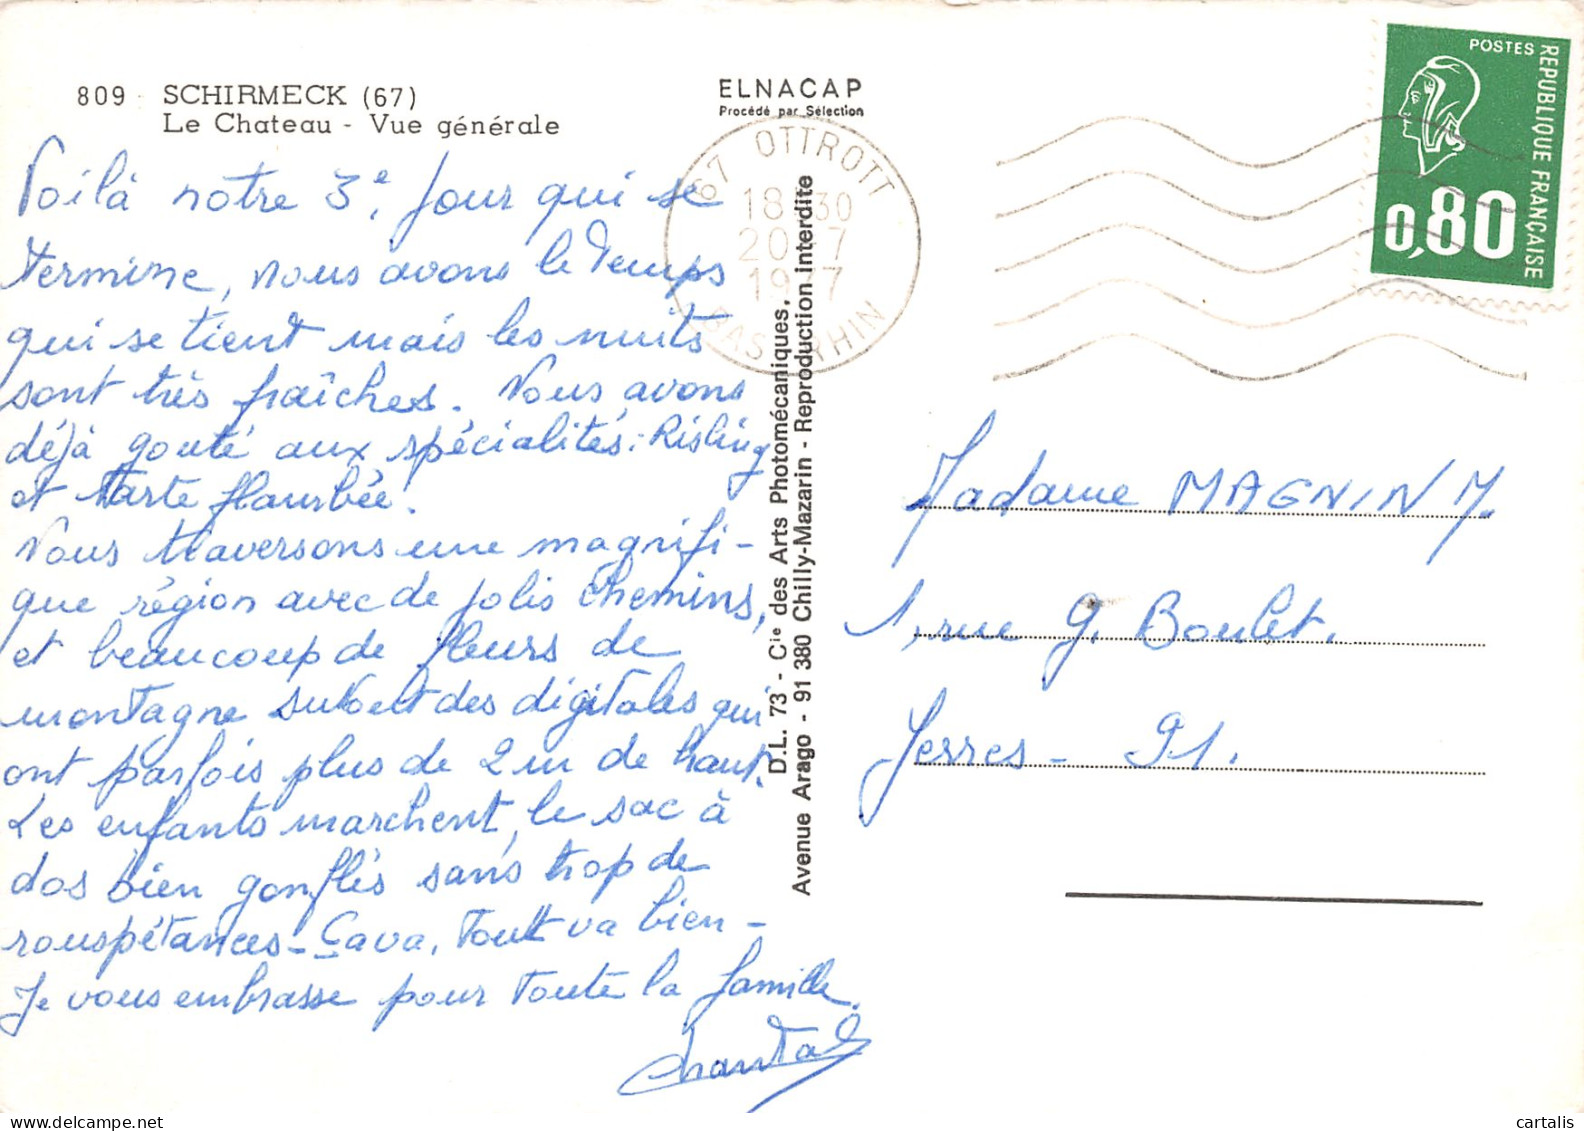 809 SCHIRMECK (67)
Le Chateau - Vue générale
ELNACAP
Procédé par Sélection
67 OTTROTT
18 30
20 -7
1977
BAS RHIN
POSTES
REPUBLIQUE FRANÇAISE
0,80
Voilà notre 3e, jour qui se
termine, nous avons le temps
qui se tient mais les nuits
sont très fraîches. Nous avons
déjà gouté aux spécialités : Risling
et tarte flambée.
Nous traversons une magnifi-
que région avec de jolis chemins,
et beaucoup de fleurs de
montagne surtout des digitales qui
ont parfois plus de 2 m de haut.
Les enfants marchent, le sac à
dos bien gonflés sans trop de
rouspétances - Ça va, Tout va bien -
Je vous embrasse pour toute la famille.
Chantal
D.L. 73 - Cie des Arts Photomécaniques,
Avenue Arago - 91 380 Chilly-Mazarin - Reproduction interdite
Madame MAGNIN M.
1, rue G. Boulet.
Yerres - 91.
cartalis | delcampe.net